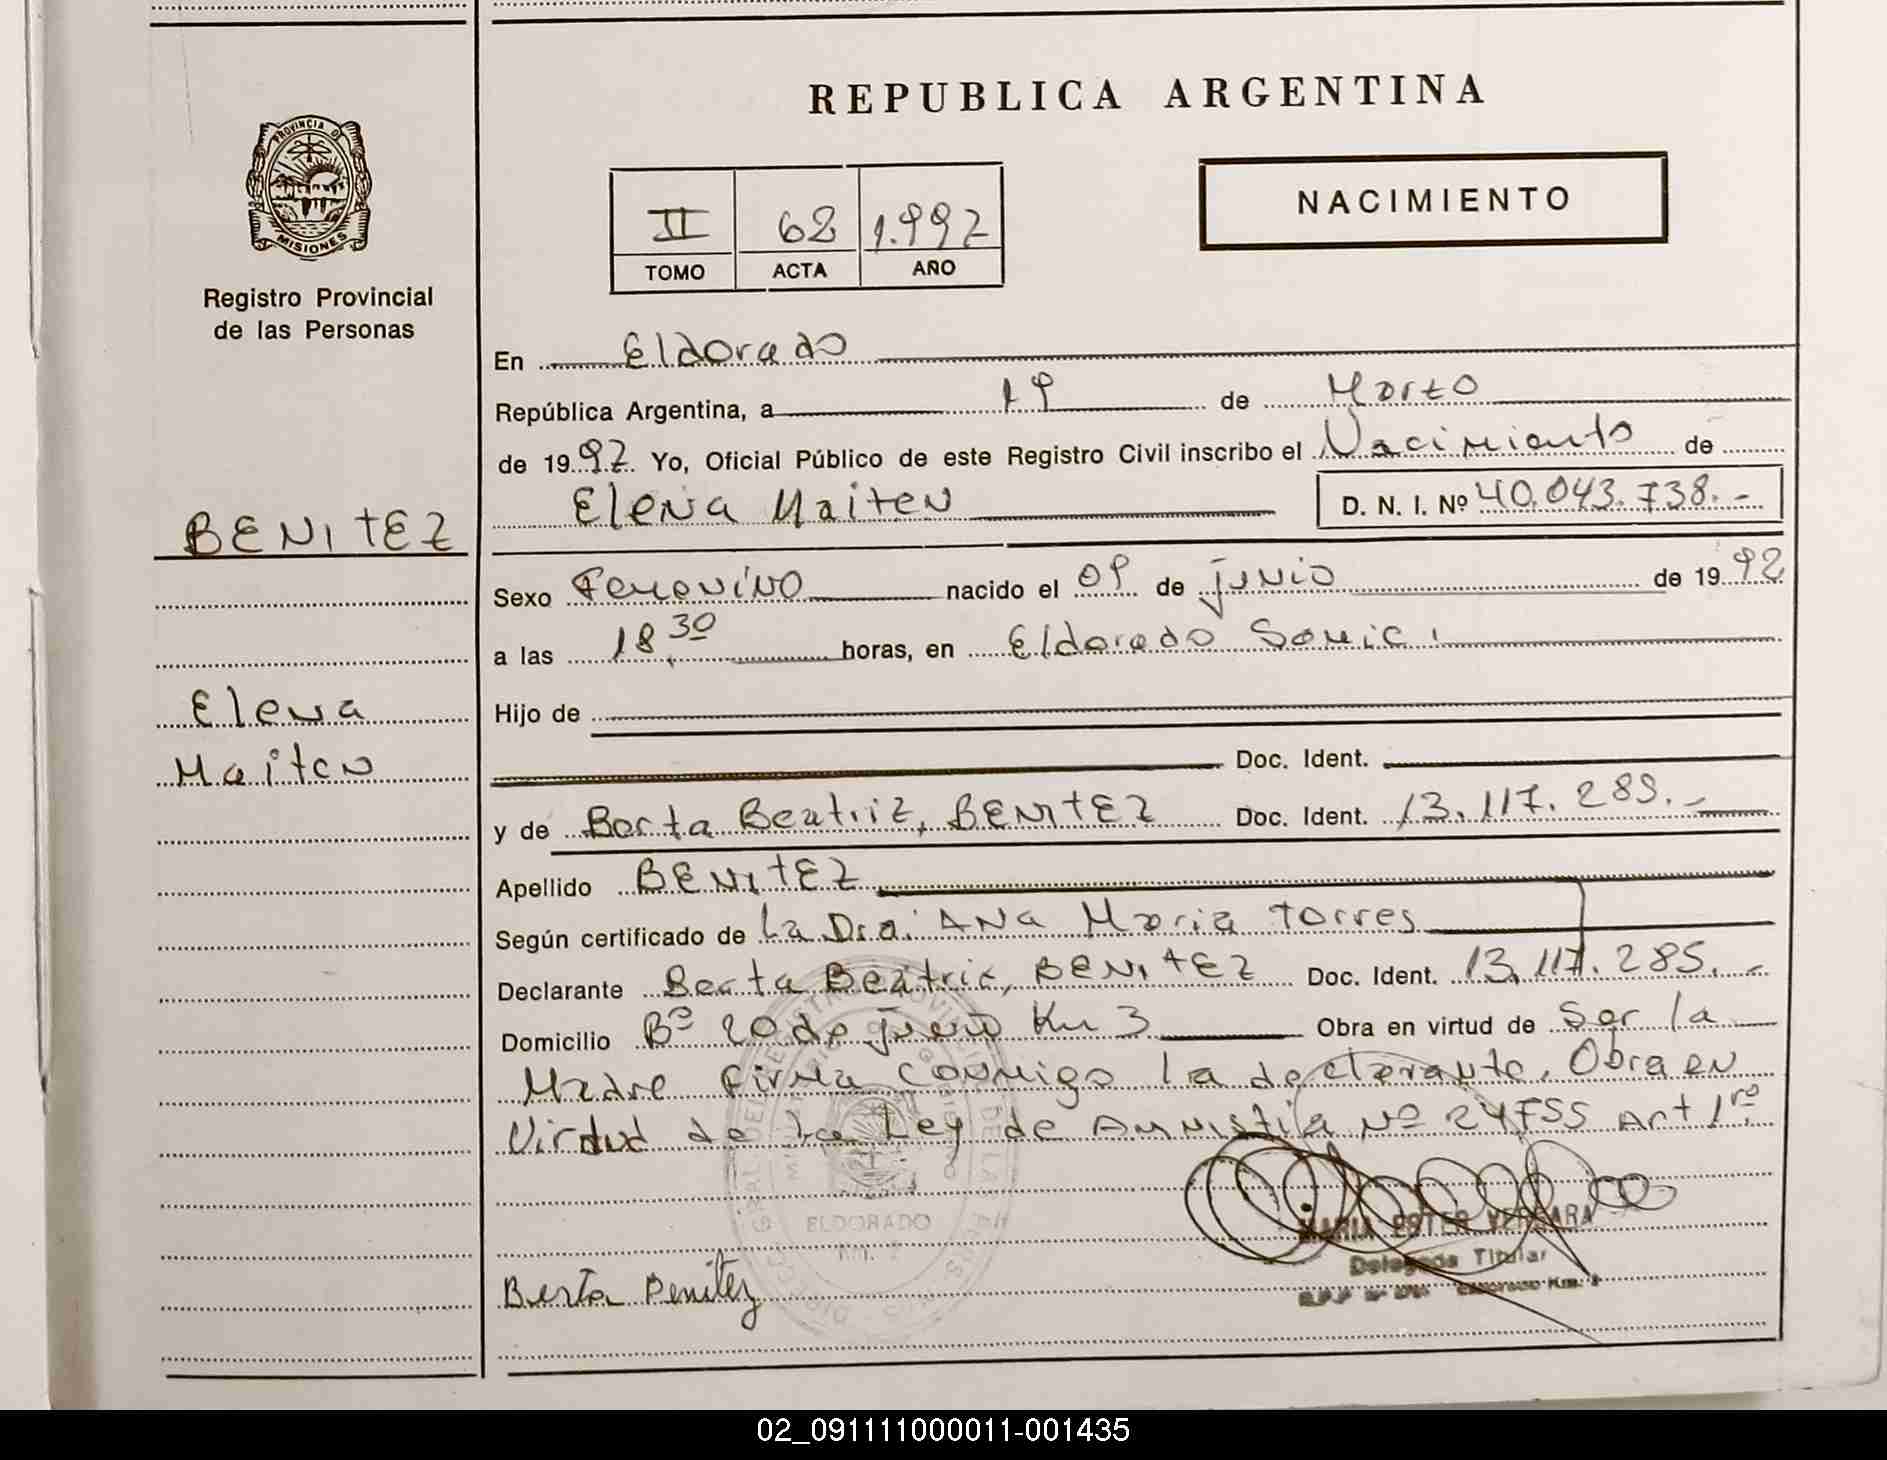 REPUBLICA ARGENTINA
PROVINCIA DE
MISIONES
Registro Provincial
de las Personas
II 62 1.997
TOMO ACTA AÑO
NACIMIENTO
En Eldorado
República Argentina, a 19 de Marzo
de 1997. Yo, Oficial Público de este Registro Civil inscribo el Nacimiento de
Elena Maiten D. N. I. Nº 40.043.738.-
BENITEZ
Elena
Maiten
Sexo Femenino nacido el 09 de junio de 1992
a las 18,30 horas, en Eldorado Samic.
Hijo de
Doc. Ident.
y de Berta Beatriz, BENITEZ Doc. Ident. 13.117.285.-
Apellido BENITEZ
Según certificado de La Dra. ANA Maria Torres
Declarante Berta Beatriz, BENITEZ Doc. Ident. 13.117.285.-
Domicilio Bº 20 de junio Km 3 Obra en virtud de Ser la
Madre firma conmigo la declarante. Obra en
Virdud de La Ley de Amnistia Nº 24755 Art 1ro.
ELDORADO
MARIA ESTER VERGARA
Delegada Titular
Berta Benitez
02_091111000011-001435